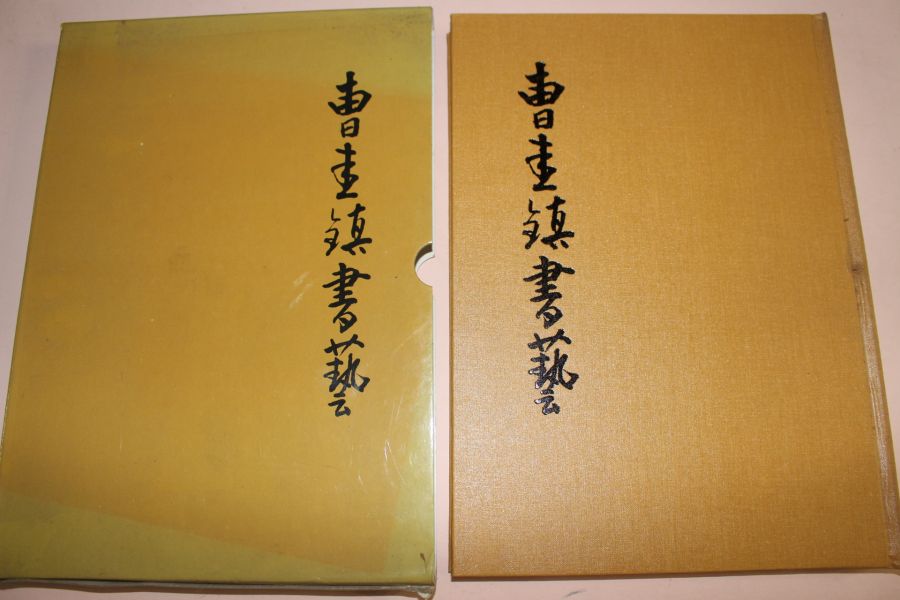 曺圭鎮書藝
曺圭鎮書藝